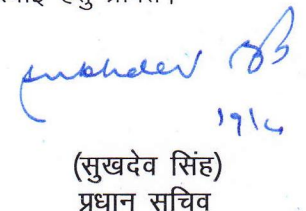 हेतु
sukhdev
19/6
(सुखदेव सिंह)
प्रधान सचिव